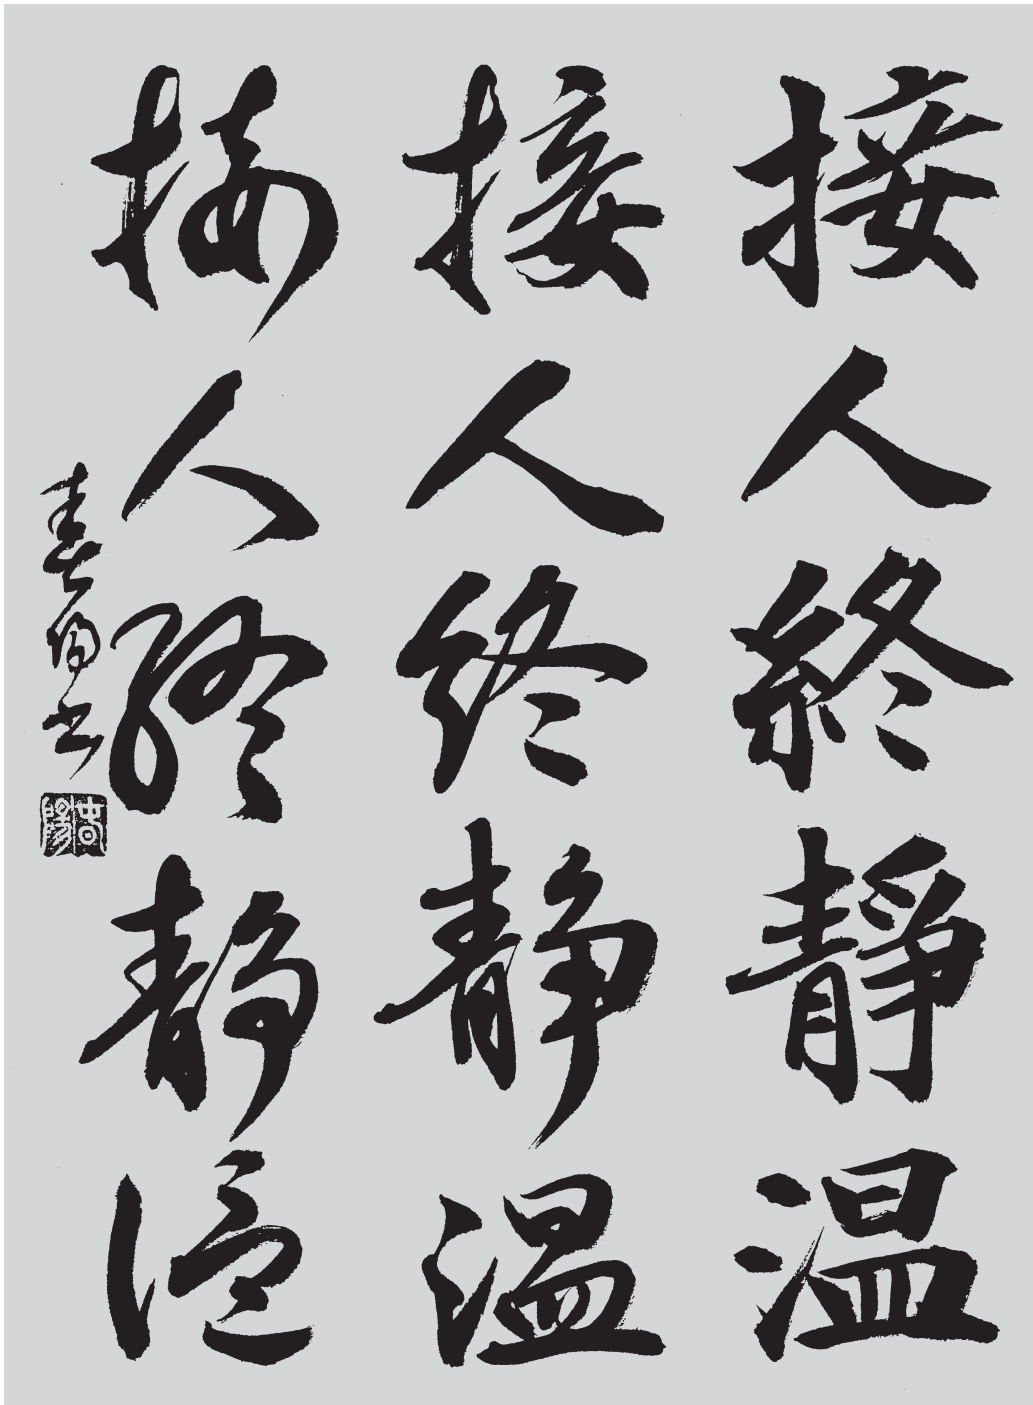 接人終靜温
接人终静温
接人終静温
春陽書
春陽